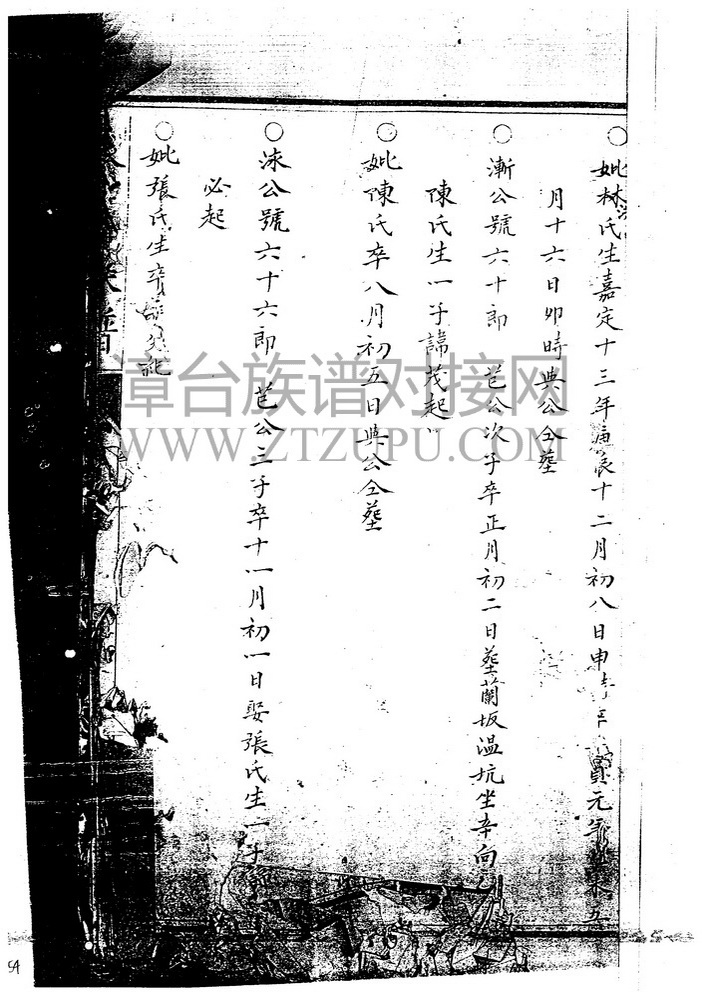 ○妣林氏生嘉定十三年庚辰十二月初八日申 元年 五
月十六日卯時與公仝塟
○漸公號六十郎 苞公次子卒正月初二日塟蘭坂溫坑坐辛向
陳氏生一子諱茂起
○妣陳氏卒八月初五日與公仝塟
○洙公號六十六郎 苞公三子卒十一月初一日娶張氏生一子
必起
○妣張氏生卒 失記
譜
漳台族谱对接网
WWW.ZTZUPU.COM